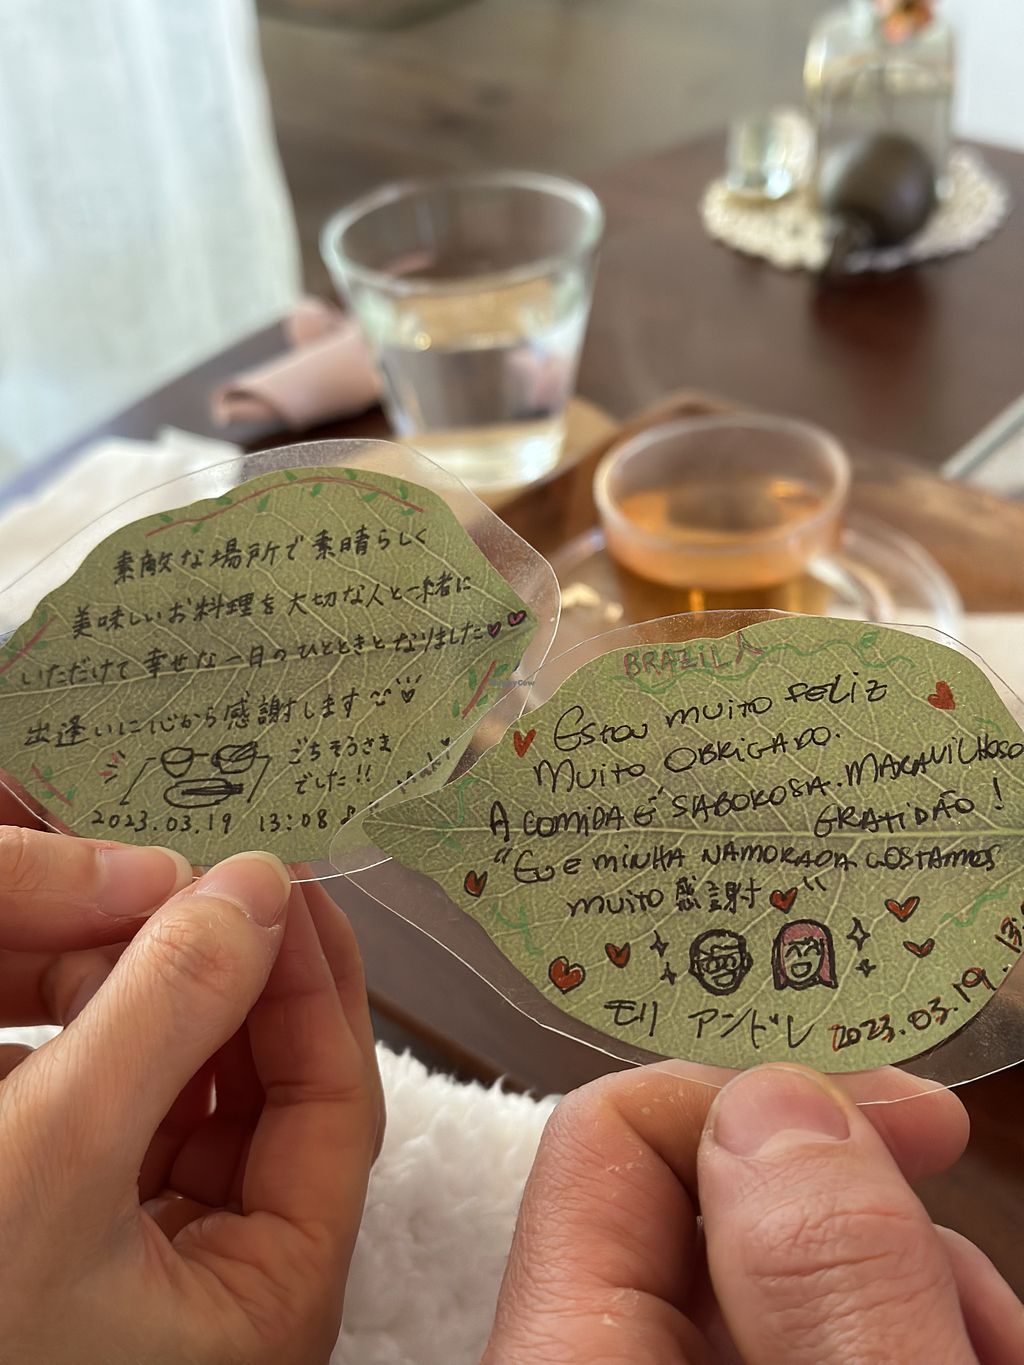 素敵な場所で素晴らしく
美味しいお料理を大切な人と一緒に
いただけて幸せな一日のひとときとなりました
出逢いに心から感謝します
ごちそうさま
でした!!
2023.03.19 13:08
BRAZIL
Estou muito feliz
muito obrigado.
A comida é saborosa. maravilhoso
gratidão!
"Eu e minha namorada gostamos
muito 感謝"
モリ アンドレ 2023.03.19.